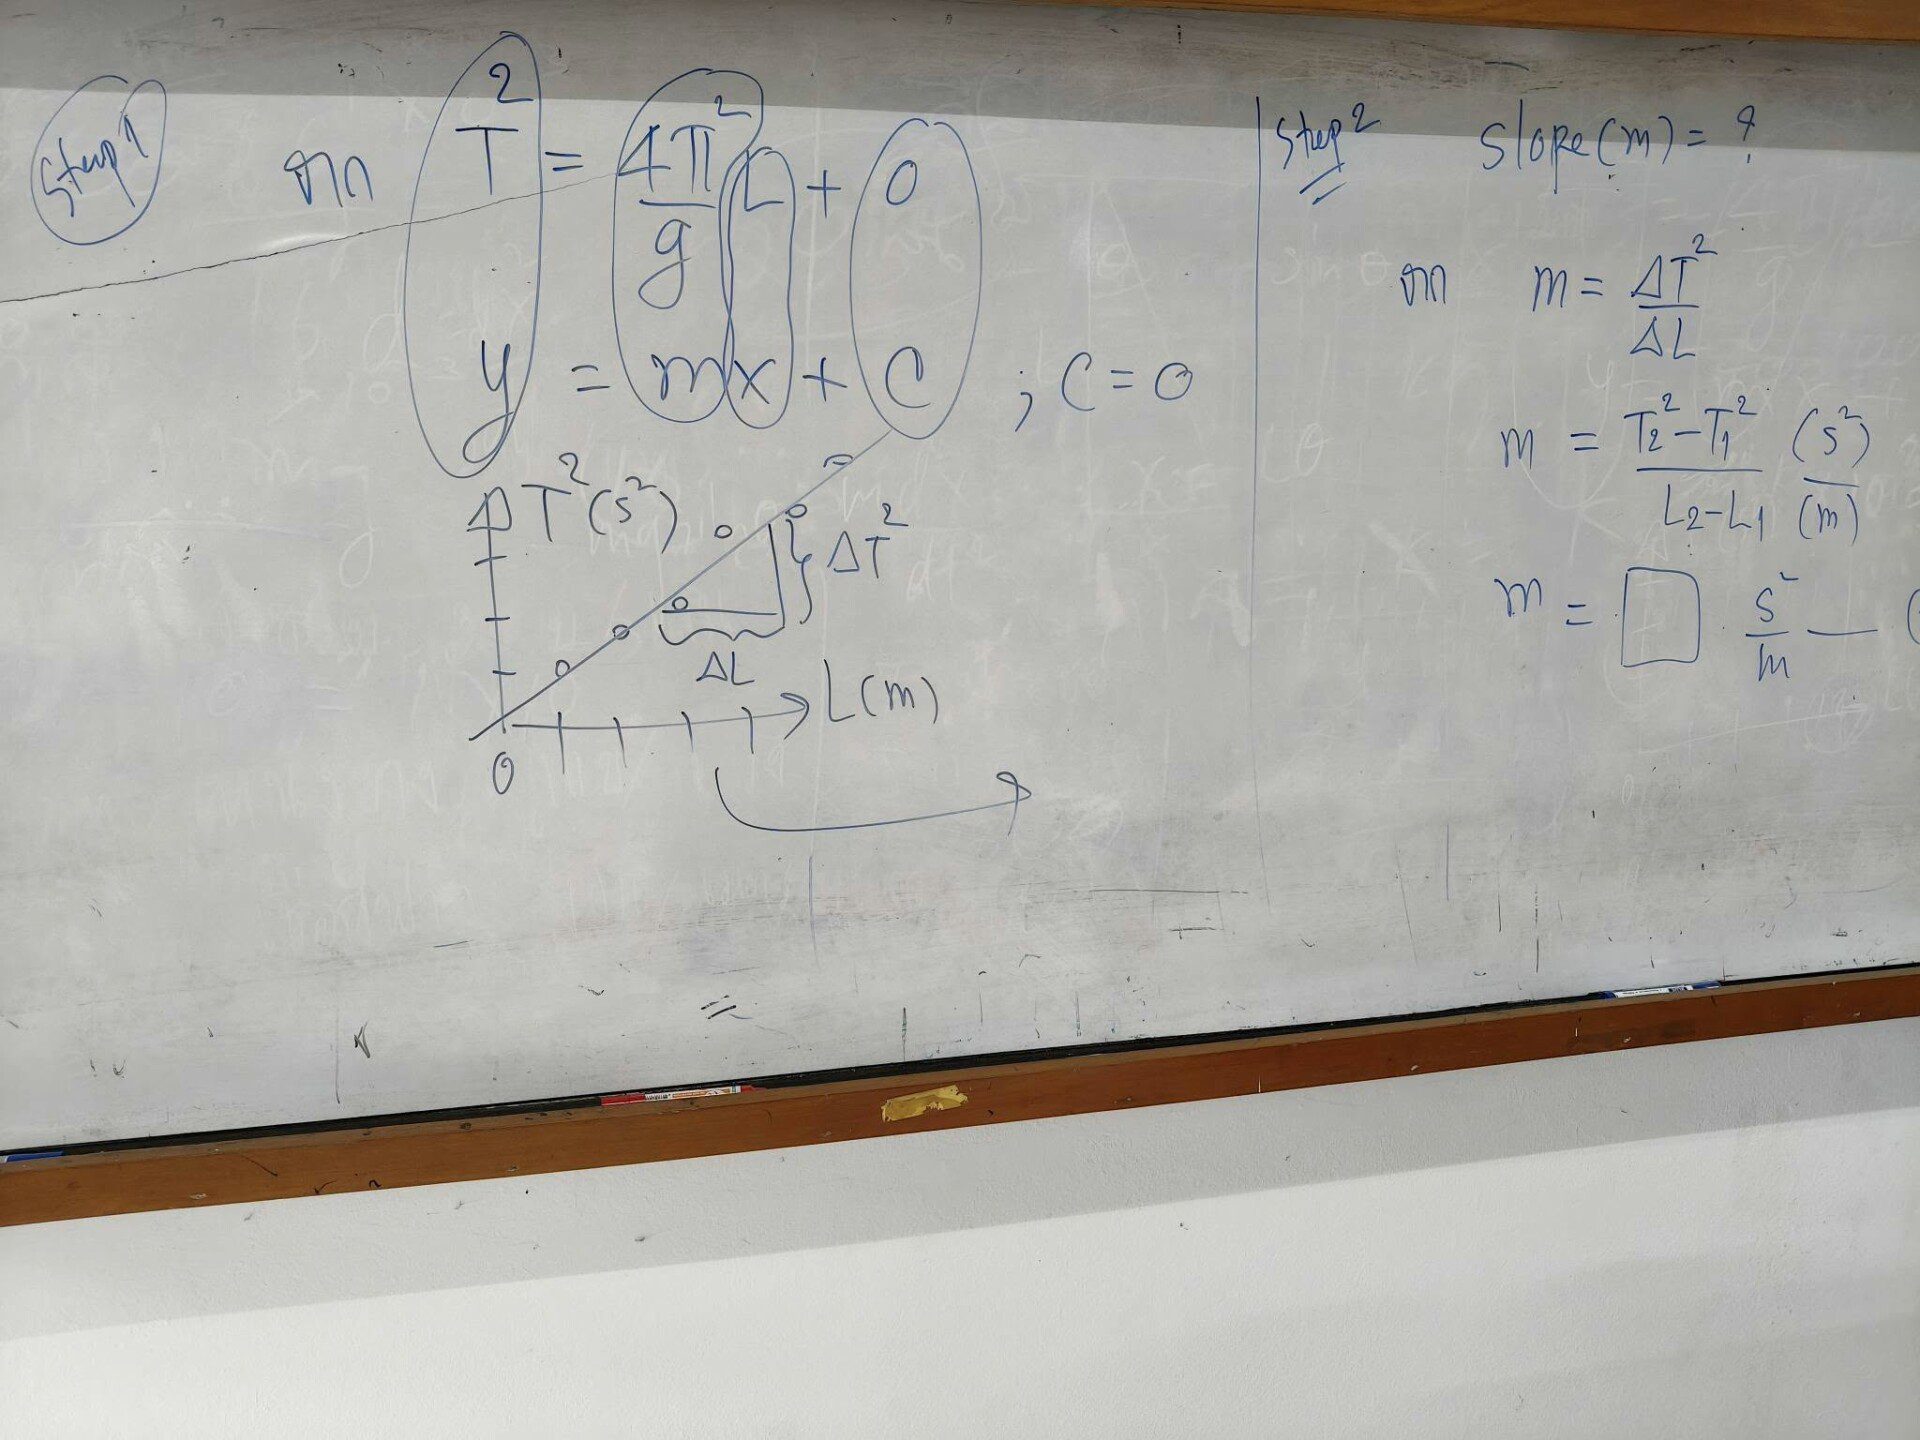 Step 1
จาก T² = 4π²/g L + 0
y = mx + C ; C = 0
T² (s²)
ΔT²
ΔL
L (m)
0
Step 2 Slope (m) = ?
จาก m = ΔT²/ΔL
m = T₂² - T₁² (s²) / L₂ - L₁ (m)
m = □ s²/m — (